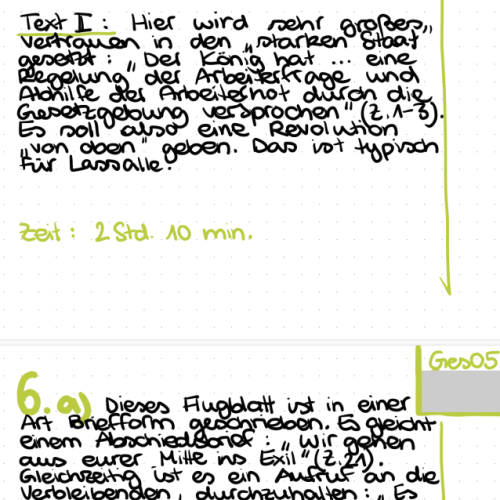 Text II: Hier wird sehr großes
Vertrauen in den „starken Staat
gesetzt: „Der König hat ... eine
Regelung" der Arbeiterfrage und
Abhilfe der Arbeiternot durch die
Gesetzgebung versprochen" (Z. 1-3).
Es soll also eine Revolution
„von oben" geben. Das ist typisch
für Lassalle.
Zeit: 2 Std. 10 min.
Ges05
6. a) Dieses Flugblatt ist in einer
Art Briefform geschrieben. Es gleicht
einem Abschiedsbrief: „Wir gehen
aus eurer Mitte ins Exil" (Z. 21).
Gleichzeitig ist es ein Aufruf an die
Verbleibenden, durchzuhalten: „Es